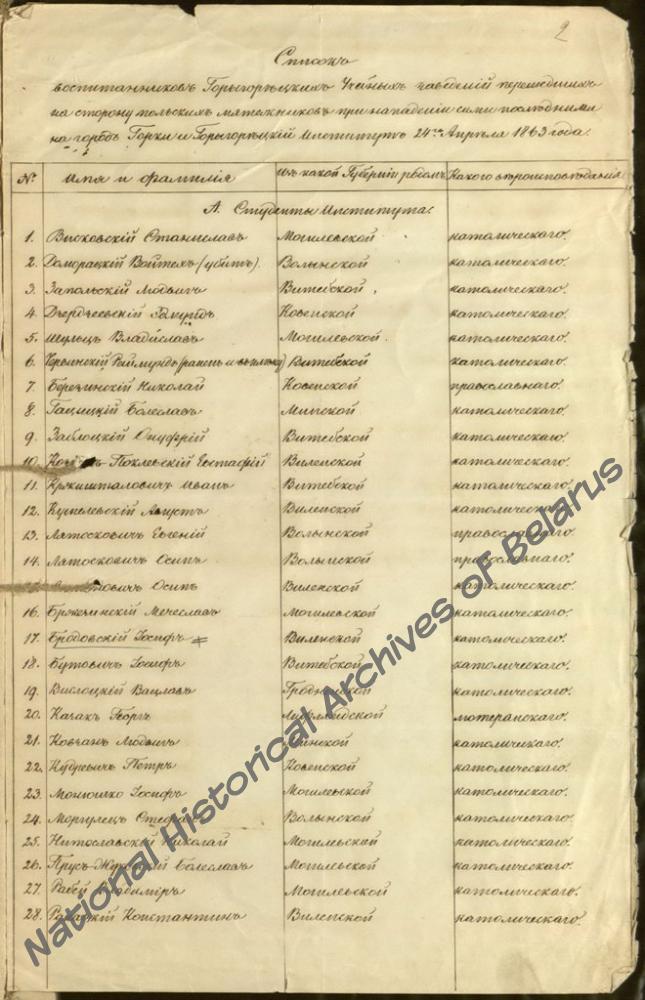 2
Списокъ
воспитанниковъ Горыгорѣцкихъ Учебныхъ заведеній перешедшихъ
на сторону польскихъ мятежниковъ при нападеніи сими послѣдними
на городъ Горки и Горыгорѣцкій Институтъ 24го Апрѣля 1863 года.
№. Имя и фамилія Изъ какой Губерніи родомъ Какого вѣроисповѣданія
А. Студенты Института:
1. Висковскій Станиславъ Могилевской католическаго.
2. Доморацкій Войтехъ (убитъ). Волынской католическаго.
3. Запольскій Людвигъ Витебской католическаго.
4. Ковенской католическаго.
5. Шульцъ Владиславъ Могилевской католическаго.
6. Реймундъ (раненъ и Витебской католическаго.
7. Николай Ковенской православнаго.
8. Гацицкій Болеславъ Минской католическаго.
9. Заблоцкій Онуфрій Витебской католическаго.
10. Поклевскій Евстафій Виленской католическаго.
11. Кржишталовичъ Иванъ Витебской католическаго.
12. Августъ Виленской католическаго.
13. Лятосковичъ Евгеній Волынской православнаго.
14. Лятосковичъ Осипъ Волынской православнаго.
Осипъ Виленской католическаго.
16. Бржезинскій Мечеславъ Могилевской католическаго.
17. Бродовскій Іосифъ Виленской католическаго.
18. Бутовичъ Іосифъ Витебской католическаго.
19. Вислоцкій Вацлавъ Гродненской католическаго.
20. Качакъ Георгъ Лифляндской лютеранскаго.
21. Ковчанъ Людвигъ Минской католическаго.
22. Кудревичъ Петръ Ковенской католическаго.
23. Монюшко Іосифъ Могилевской католическаго.
24. Моргулецъ Стефанъ Волынской католическаго.
25. Нитославскій Николай Могилевской католическаго.
26. Прусъ-Жуковскій Болеславъ Могилевской католическаго.
27. Могилевской католическаго.
28. Константинъ Виленской католическаго.
National Historical Archives of Belarus